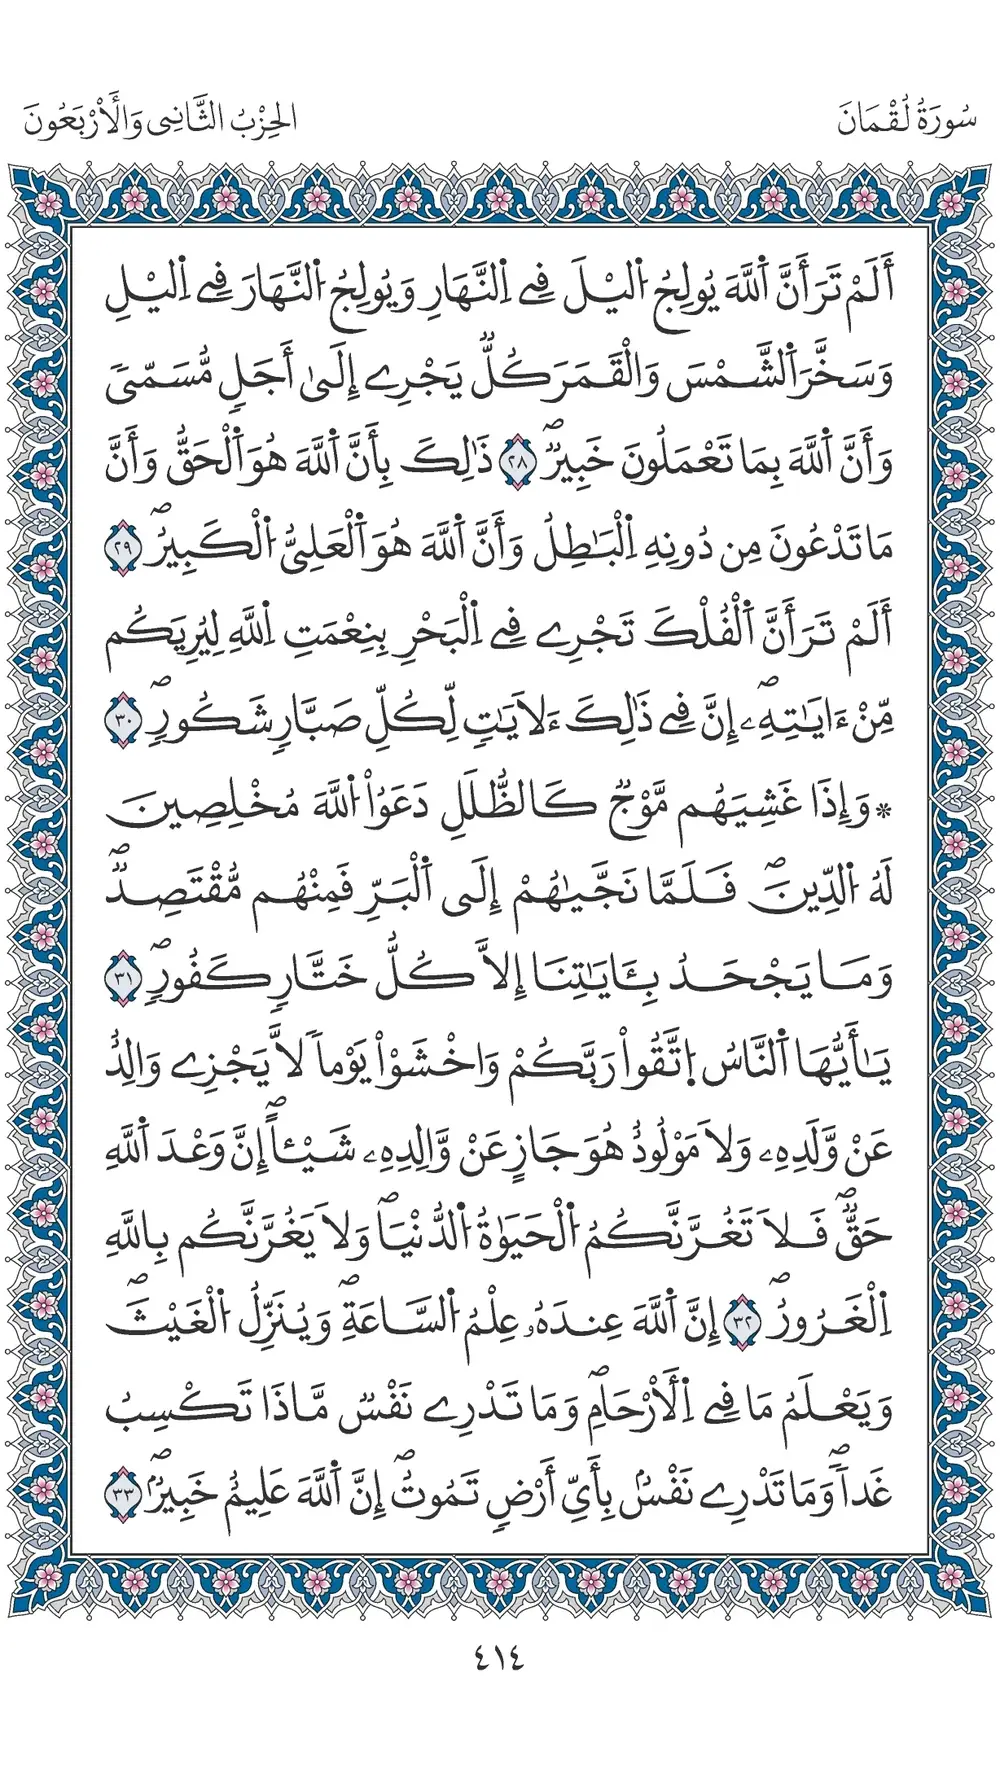 سُورَةُ لُقْمَانَ
الحِزْبُ الثَّانِى وَالْأَرْبَعُونَ
أَلَمْ تَرَ أَنَّ اَ۬للَّهَ يُولِجُ اُ۬ليْلَ فِے اِ۬لنَّهَارِ وَيُولِجُ اُ۬لنَّهَارَ فِے اِ۬ليْلِ
وَسَخَّرَ اَ۬لشَّمْسَ وَالْقَمَرَ كُلّٞ يَجْرِے إِلَىٰٓ أَجَلٖ مُّسَمّىٗ
وَأَنَّ اَ۬للَّهَ بِمَا تَعْمَلُونَ خَبِيرٞۖ ٢٨ ذَٰلِكَ بِأَنَّ اَ۬للَّهَ هُوَ اَ۬لْحَقُّ وَأَنَّ
مَا تَدْعُونَ مِن دُونِهِ اِ۬لْبَٰطِلُ وَأَنَّ اَ۬للَّهَ هُوَ اَ۬لْعَلِىُّ اُ۬لْكَبِيرُۖ ٢٩
أَلَمْ تَرَ أَنَّ اَ۬لْفُلْكَ تَجْرِے فِے اِ۬لْبَحْرِ بِنِعْمَتِ اِ۬للَّهِ لِيُرِيَكُم
مِّنْ ءَايَٰتِهِۦۖ إِنَّ فِے ذَٰلِكَ ءَلَايَٰتٖ لِّكُلِّ صَبَّارٖ شَكُورٖۖ ٣٠
۞وَإِذَا غَشِيَهُم مَّوْجٞ كَالظُّلَلِ دَعَوُاْ اُ۬للَّهَ مُخْلِصِينَ
لَهُ اُ۬لدِّينَۖ فَلَمَّا نَجَّيٰهُمْ إِلَى اَ۬لْبَرِّ فَمِنْهُم مُّقْتَصِدٞۖ
وَمَا يَجْحَدُ بِـَٔايَٰتِنَا إِلَّا كُلُّ خَتَّارٖ كَفُورٖۖ ٣١
يَٰأَيُّهَا اَ۬لنَّاسُ اُ۪تَّقُواْ رَبَّكُمْ وَاخْشَوْاْ يَوْماٗ لَّا يَجْزِے وَالِدٌ
عَنْ وَّلَدِهِۦ وَلَا مَوْلُودٌ هُوَ جَازٍ عَنْ وَّالِدِهِۦ شَيْـٔاًۖ إِنَّ وَعْدَ اَ۬للَّهِ
حَقّٞۖ فَلَا تَغُرَّنَّكُمُ اُ۬لْحَيَوٰةُ اُ۬لدُّنْيَاۖ وَلَا يَغُرَّنَّكُم بِاللَّهِ
اِ۬لْغَرُورُۖ ٣٢ إِنَّ اَ۬للَّهَ عِندَهُۥ عِلْمُ اُ۬لسَّاعَةِۖ وَيُنَزِّلُ اُ۬لْغَيْثَۖ
وَيَعْلَمُ مَا فِے اِ۬لْأَرْحَامِۖ وَمَا تَدْرِے نَفْسٞ مَّاذَا تَكْسِبُ
غَداٗۖ وَمَا تَدْرِے نَفْسُۢ بِأَىِّ أَرْضٖ تَمُوتُۖ إِنَّ اَ۬للَّهَ عَلِيمٌ خَبِيرٌۖ ٣٣
٤١٤